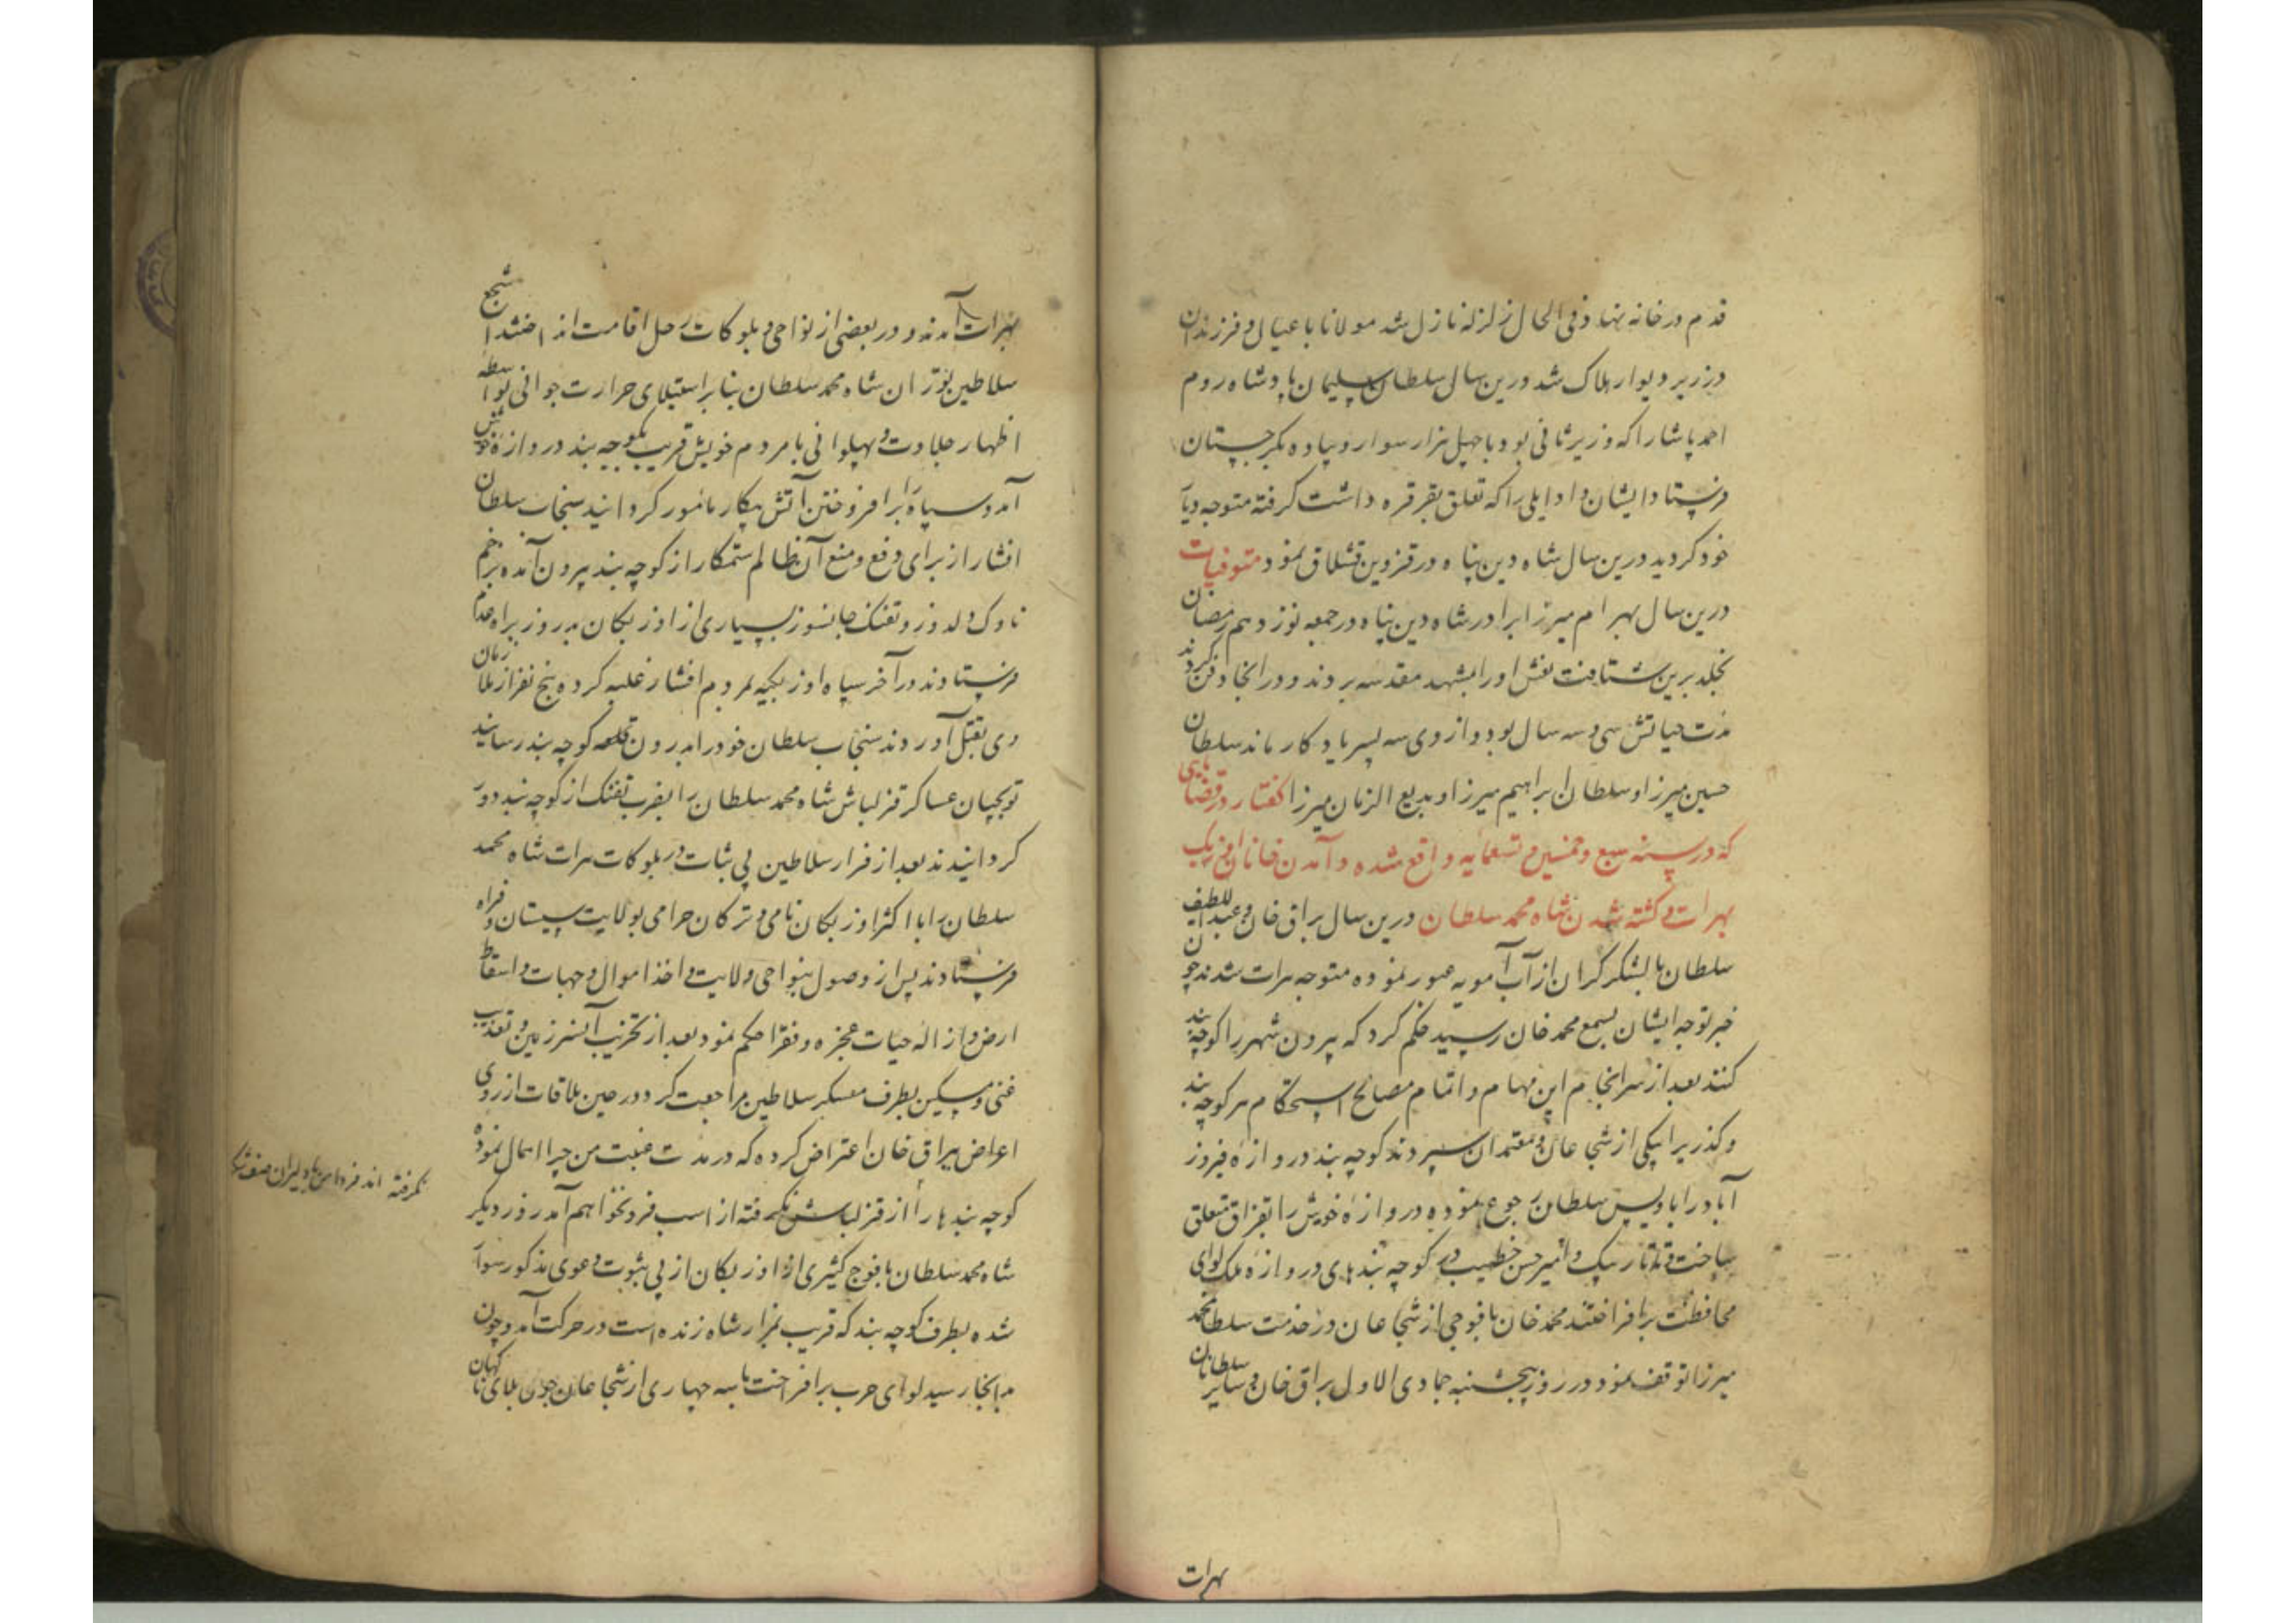 قدم در خانه نهاد فی الحال زلزله نازل شد مولانا با عیال و فرزندان
در زیر دیوار هلاک شد درین سال سلطان سلیمان پادشاه روم
احمد پاشا را که وزیر ثانی بود با چهل هزار سوار و پیاده بگرجستان
فرستاد ایشان وادایلی را که تعلق بقرقره داشت گرفته متوجه دیار
خود گردید درین سال شاه دین پناه در قزوین قشلاق نمود متوفیات
درین سال بهرام میرزا برادر شاه دین پناه در جمعه نوزدهم رمضان
بخلد برین شتافت نعش او را بمشهد مقدسه بردند و در انجا دفن کردند
مدت حیاتش سی و سه سال بود و از وی سه پسر یادگار ماند سلطان
حسین میرزا و سلطان ابراهیم میرزا و بدیع الزمان میرزا گفتار در قضایایی
که در سنه سبع و خمسین و تسعمایه واقع شده و آمدن خانان اوزبک
بهرات و کشته شدن شاه محمد سلطان درین سال براق خان و عبداللطیف
سلطان با لشکر گران از آب آمویه عبور نموده متوجه هرات شدند چون
خبر توجه ایشان بسمع محمد خان رسید حکم کرد که بیرون شهر را کوچه بند
کنند بعد از سرانجام این مهام و اتمام مصالح استحکام هر کوچه بند
و گذر را بیکی از شجاعان و معتمدان سپردند کوچه بند دروازه فیروز
آباد را باویس سلطان رجوع نموده دروازه خوش را بقزاق متعلق
ساخت و تاتار بیک و امیر حسن خطیب در کوچه بندهای دروازه ملک لوای
محافظت برافراختند محمد خان با فوجی از شجاعان در خدمت سلطان محمد
میرزا توقف نمود در روز پنجشنبه جمادی الاول براق خان و سایر سلطانان
بهرات
بهرات آمدند و در بعضی از نواحی و بلوکات رحل اقامت انداختند اشجع
سلاطین توران شاه محمد سلطان بنابر استیلای حرارت جوانی بواسطه
اظهار جلادت و پهلوانی با مردم خویش قریب بکوچه بند دروازه خوش
آمد و سپاه را بر افروختن آتش پیکار مامور گردانید سنجاب سلطان
افشار از برای دفع و منع آن ظالم ستمکار از کوچه بند بیرون آمده بزخم
ناوک دلدوز و تفنک جانسوز بسیاری از اوزبکان بدروز براه عدم
فرستادند در آخر سپاه اوزبکیه بمردم افشار غلبه کرده پنج نفر از ملازمان
وی بقتل آوردند سنجاب سلطان خود را بدرون قلعه کوچه بند رسانید
توپچیان عساکر قزلباش شاه محمد سلطان را بضرب تفنک از کوچه بند دور
گردانیدند بعد از قرار سلاطین بی ثبات در بلوکات هرات شاه محمد
سلطان را با اکثر اوزبکان نامی و ترکان حرامی بولایت سیستان و فراه
فرستادند پس از وصول بنواحی ولایت و اخذ اموال و جهات و اسقاط
ارض و ازاله حیات عجزه و فقرا حکم نمود بعد از تخریب آن سرزمین و تعذیب
غنی و مسکین بطرف معسکر سلاطین مراجعت کرد و در حین ملاقات از روی
اعراض ببراق خان اعتراض کرده که در مدت غیبت من چرا اهمال نموده
کوچه بندها را از قزلباش نگرفته از اسب فرو نخواهم آمد روز دیگر
شاه محمد سلطان با فوج کثیری از اوزبکان از پی ثبوت دعوی مذکور سوار
شده بطرف کوچه بند که قریب بمزار شاه زنده است در حرکت آمد و چون
بدانجا رسید لوای حرب برافراخت با سه چهاری از شجاعان چون بلای ناگهان
نگرفته اند فردا من با دلیران صف شکن